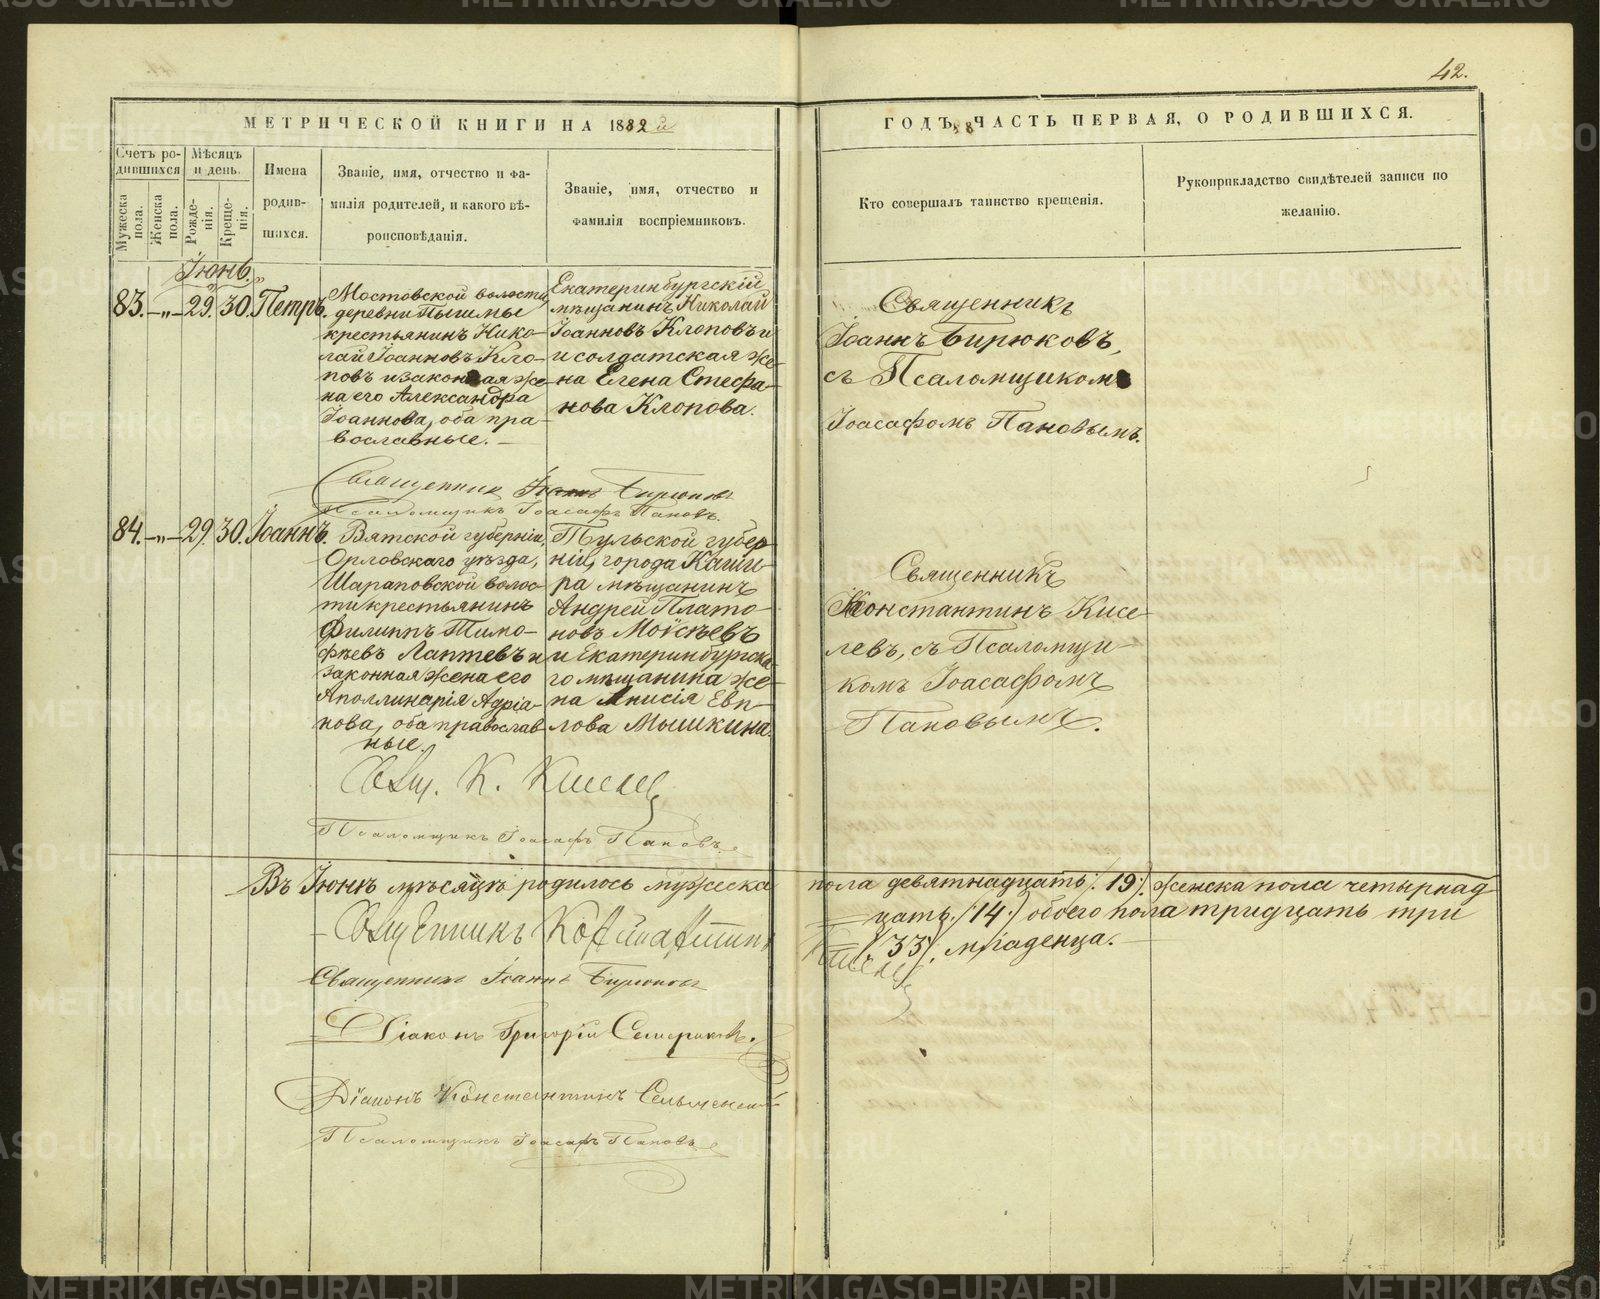 42.
МЕТРИЧЕСКОЙ КНИГИ НА 1882 й
ГОДЪ, ЧАСТЬ ПЕРВАЯ, О РОДИВШИХСЯ.
Счетъ родившихся
Мужеска пола.
Женска пола.
Мѣсяцъ и день.
Рожденія.
Крещенія.
Имена родившихся.
Званіе, имя, отчество и фамилія родителей, и какого вѣроисповѣданія.
Званіе, имя, отчество и фамилія воспріемниковъ.
Кто совершалъ таинство крещенія.
Рукоприкладство свидѣтелей записи по желанію.
Іюнь.
83. — „ — 29. 30. Петръ.
Мостовской волости,
деревни Пышмы
крестьянинъ Нико-
лай Іоанновъ Кло-
повъ и законная же-
на его Александра
Іоаннова, оба пра-
вославные. —
Екатеринбургскій
мѣщанинъ Николай
Іоанновъ Клоповъ и
и солдатская же-
на Елена Стефа-
нова Клопова.
Священникъ
Іоаннъ Бирюковъ,
съ Псаломщикомъ
Іоасафомъ Пановымъ.
Священникъ Іоаннъ Бирюковъ
Псаломщикъ Іоасафъ Пановъ.
84. — „ — 29. 30. Іоаннъ.
Вятской губерніи,
Орловскаго уѣзда,
Шараповской волос-
ти крестьянинъ
Филиппъ Тимо-
фѣевъ Лаптевъ и
законная жена его
Аполлинарія Адріа-
нова, оба православ
ные.
Тульской губер-
ніи, города Каши-
ра мѣщанинъ
Андрей Плато-
новъ Моѵсѣевъ
и Екатеринбургска-
го мѣщанина же-
на Анисія Евп-
лова Мышкина.
Священникъ
Константинъ Кисе-
левъ, съ Псаломщи-
комъ Іоасафомъ
Пановымъ.
Свящ. К. Киселев
Псаломщикъ Іоасафъ Пановъ.
Въ Іюнѣ мѣсяцѣ родилось мужеска пола девятнадцать /: 19 :/ женска пола четырнад
цать /: 14 :/ обоего пола тридцать три
/: 33 :/ младенца. —
Священникъ Константинъ
Киселев
Священникъ Іоаннъ Бирюковъ
Діаконъ Григорій
Діаконъ Константинъ
Псаломщикъ Іоасафъ Пановъ.
METRIKI.GASO-URAL.RU